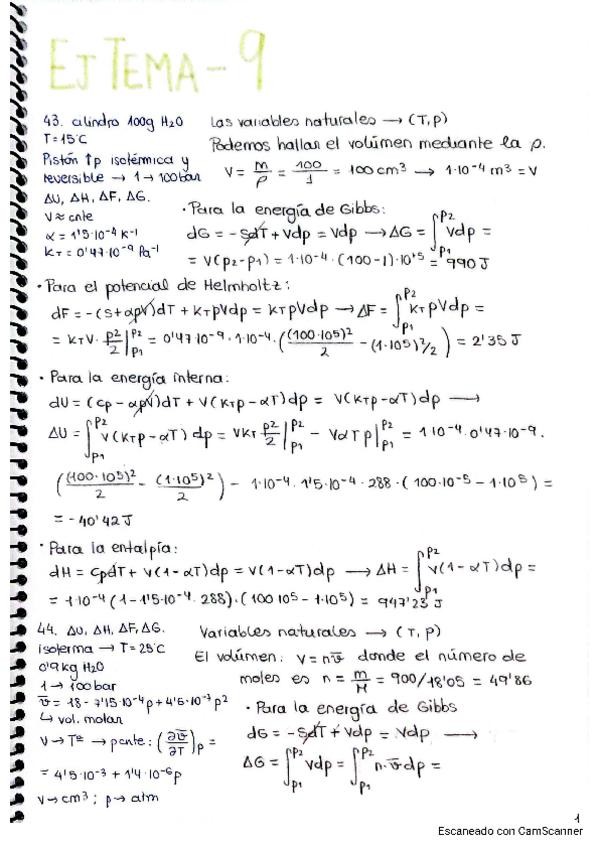 EJ TEMA - 9
43. cilindro 100g H2O
T=15°C
Pistón ↑p isotérmica y
reversible → 1 → 100bar
ΔU, ΔH, ΔF, ΔG.
V ≈ cnte
α = 1'5·10⁻⁴ K⁻¹
KT = 0'47·10⁻⁹ Pa⁻¹
Las variables naturales → (T, p)
Podemos hallar el volúmen mediante la ρ.
V = m/ρ = 100/1 = 100 cm³ → 1·10⁻⁴ m³ = V
· Para la energía de Gibbs:
dG = -SdT + Vdp = Vdp → ΔG = ∫p1^p2 Vdp =
= V(p2-p1) = 1·10⁻⁴ · (100-1)·10⁵ = 990 J
· Para el potencial de Helmholtz:
dF = -(S+αpV)dT + KTpVdp = KTpVdp → ΔF = ∫p1^p2 KTpVdp =
= KTV · p²/2 |p1^p2 = 0'47·10⁻⁹ · 1·10⁻⁴ · ((100·10⁵)²/2 - (1·10⁵)²/2) = 2'35 J
· Para la energía interna:
dU = (cp - αpV)dT + V(KTp - αT)dp = V(KTp - αT)dp →
ΔU = ∫p1^p2 V(KTp - αT)dp = VKT p²/2 |p1^p2 - VαTp |p1^p2 = 1·10⁻⁴ · 0'47·10⁻⁹ ·
((100·10⁵)²/2 - (1·10⁵)²/2) - 1·10⁻⁴ · 1'5·10⁻⁴ · 288 · (100·10⁻⁵ - 1·10⁵) =
= -40'42 J
· Para la entalpía:
dH = cpdT + V(1-αT)dp = V(1-αT)dp → ΔH = ∫p1^p2 V(1-αT)dp =
= 1·10⁻⁴ (1 - 1'5·10⁻⁴ · 288) · (100·10⁵ - 1·10⁵) = 947'23 J
44. ΔU, ΔH, ΔF, ΔG.
isoterma → T=25°C
0'9 kg H2O
1 → 100bar
v̄ = 18 - 7'15·10⁻⁴p + 4'6·10⁻⁷p²
↳ vol. molar
V → Tª → pcnte: (∂v̄/∂T)p =
= 4'5·10⁻³ + 1'4·10⁻⁶p
V → cm³; p → atm
Variables naturales → (T, p)
El volúmen: V = nv̄ donde el número de
moles es n = m/M = 900/18'05 = 49'86
· Para la energía de Gibbs
dG = -SdT + Vdp = Vdp →
ΔG = ∫p1^p2 Vdp = ∫p1^p2 n·v̄dp =
1
Escaneado con CamScanner